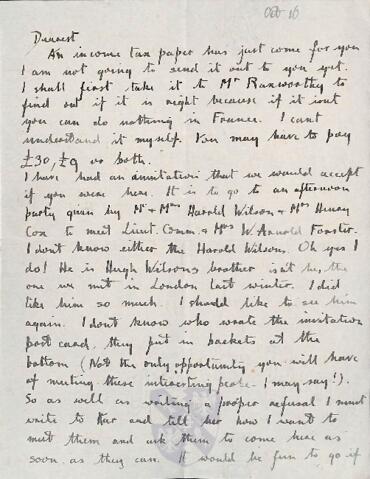 Oct 16
Dearest
An income tax paper has just come for you
I am not going to send it out to you yet.
I shall first take it to Mr Raxworthy to
find out if it is right because if it isnt
you can do nothing in France. I cant
understand it myself. You may have to pay
£30, £9 or both.
I have had an invitation that we would accept
if you were here. It is to go to an afternoon
party given by Mr & Mrs Harold Wilson & Mrs Henry
Cox to meet Lieut. Comm. & Mrs W Arnold Forster.
I dont know either the Harold Wilsons. Oh yes I
do! He is Hugh Wilsons brother isnt he, the
one we met in London last winter. I did
like him so much. I should like to see him
again. I dont know who wrote the invitation
post card, they put in brackets at the
bottom (Not the only opportunity you will have
of meeting these interesting people I may say!).
So as well as writing a proper refusal I must
write to and tell her how I want to
meet them and ask them to come here as
soon as they can It would be fun to go if